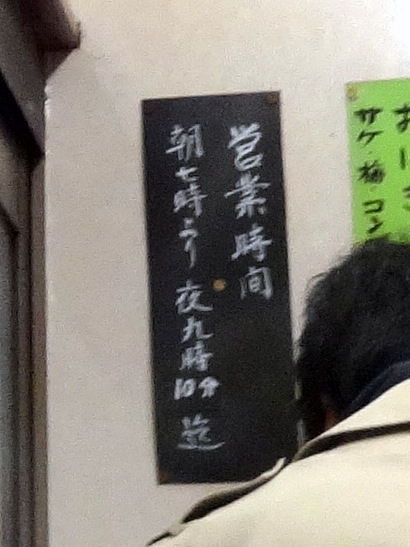 営業時間
朝七時より夜九時10分迄
おーぎ
サケ・梅・コン